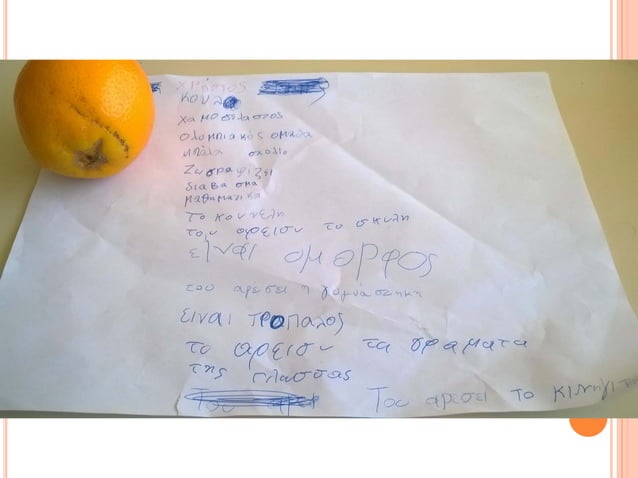 Χρήστος
κουλ
Χαμογελαστος
ολυμπιακός ομαδα
μπάλα σχολιο
Ζωγραφίζει
διαβασμα
μαθηματικα
Το κουνελη
του αρεισυ το σκυλη
είναι ομορφος
του αρέσει η γυμνάστηκη
Ειναι τροπαλος
το αρεισυ τα γραματα
της γλασσας
Του αρεσει το κινηγι